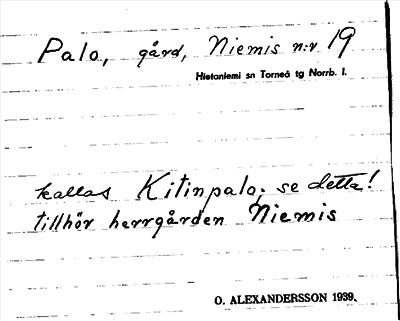 Palo, gård, Niemis n:r 19
Hietaniemi sn Torneå tg Norrb. l.
kallas Kitinpalo; se detta!
tillhör herrgården Niemis
O. ALEXANDERSSON 1939.